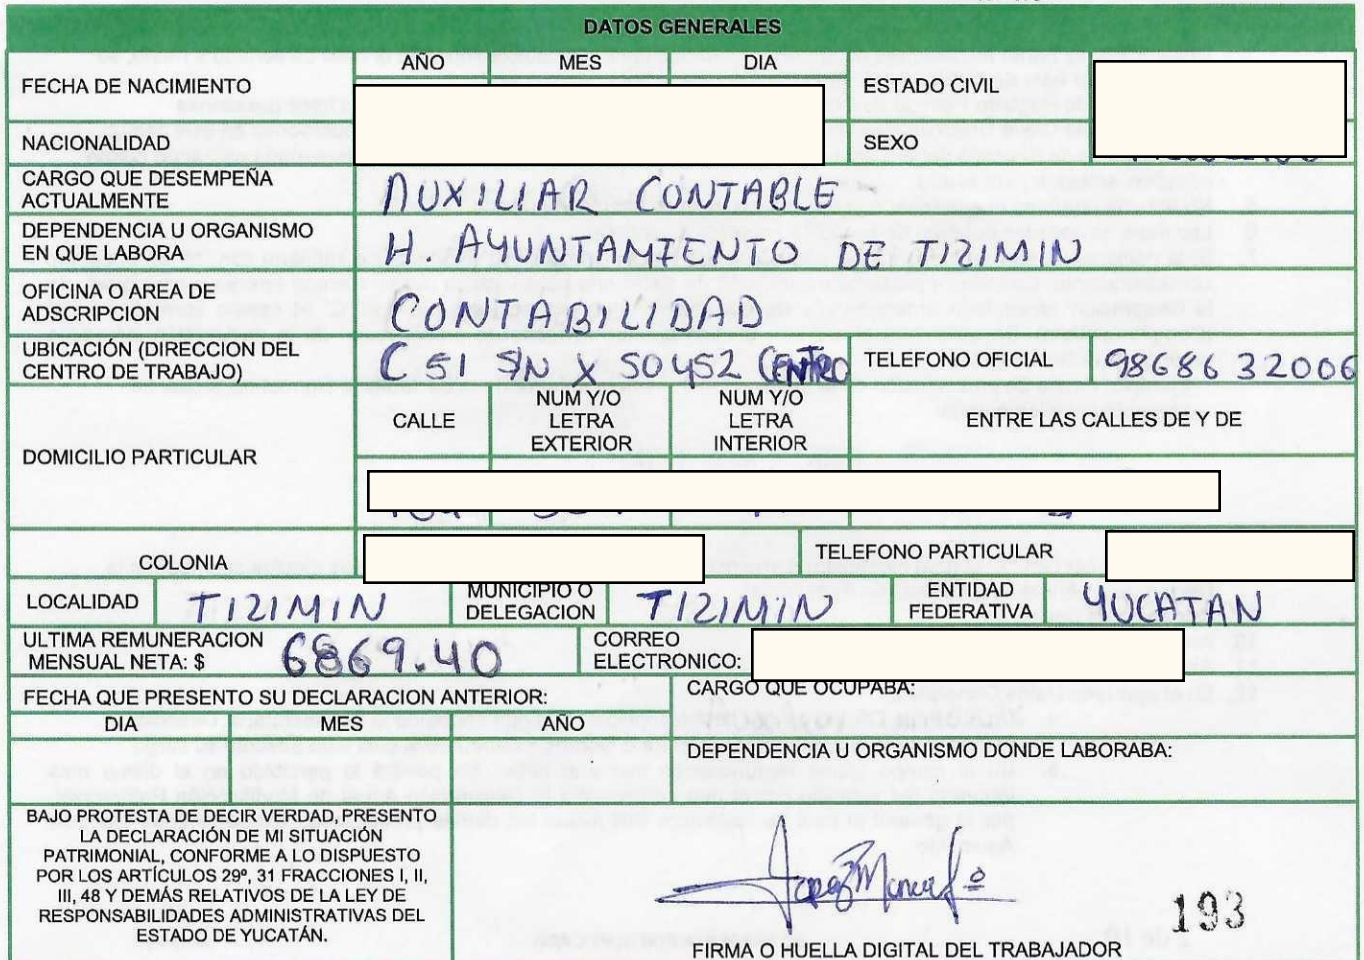 DATOS GENERALES
FECHA DE NACIMIENTO
AÑO MES DIA
ESTADO CIVIL
NACIONALIDAD
SEXO
CARGO QUE DESEMPEÑA
ACTUALMENTE
AUXILIAR CONTABLE
DEPENDENCIA U ORGANISMO
EN QUE LABORA
H. AYUNTAMIENTO DE TIZIMIN
OFICINA O AREA DE
ADSCRIPCION
CONTABILIDAD
UBICACIÓN (DIRECCION DEL
CENTRO DE TRABAJO)
C 51 S/N X 50 Y 52 CENTRO
TELEFONO OFICIAL
98686 32006
DOMICILIO PARTICULAR
CALLE
NUM Y/O
LETRA
EXTERIOR
NUM Y/O
LETRA
INTERIOR
ENTRE LAS CALLES DE Y DE
COLONIA
TELEFONO PARTICULAR
LOCALIDAD
TIZIMIN
MUNICIPIO O
DELEGACION
TIZIMIN
ENTIDAD
FEDERATIVA
YUCATAN
ULTIMA REMUNERACION
MENSUAL NETA: $
6869.40
CORREO
ELECTRONICO:
FECHA QUE PRESENTO SU DECLARACION ANTERIOR:
DIA MES AÑO
CARGO QUE OCUPABA:
DEPENDENCIA U ORGANISMO DONDE LABORABA:
BAJO PROTESTA DE DECIR VERDAD, PRESENTO
LA DECLARACIÓN DE MI SITUACIÓN
PATRIMONIAL, CONFORME A LO DISPUESTO
POR LOS ARTÍCULOS 29º, 31 FRACCIONES I, II,
III, 48 Y DEMÁS RELATIVOS DE LA LEY DE
RESPONSABILIDADES ADMINISTRATIVAS DEL
ESTADO DE YUCATÁN.
193
FIRMA O HUELLA DIGITAL DEL TRABAJADOR